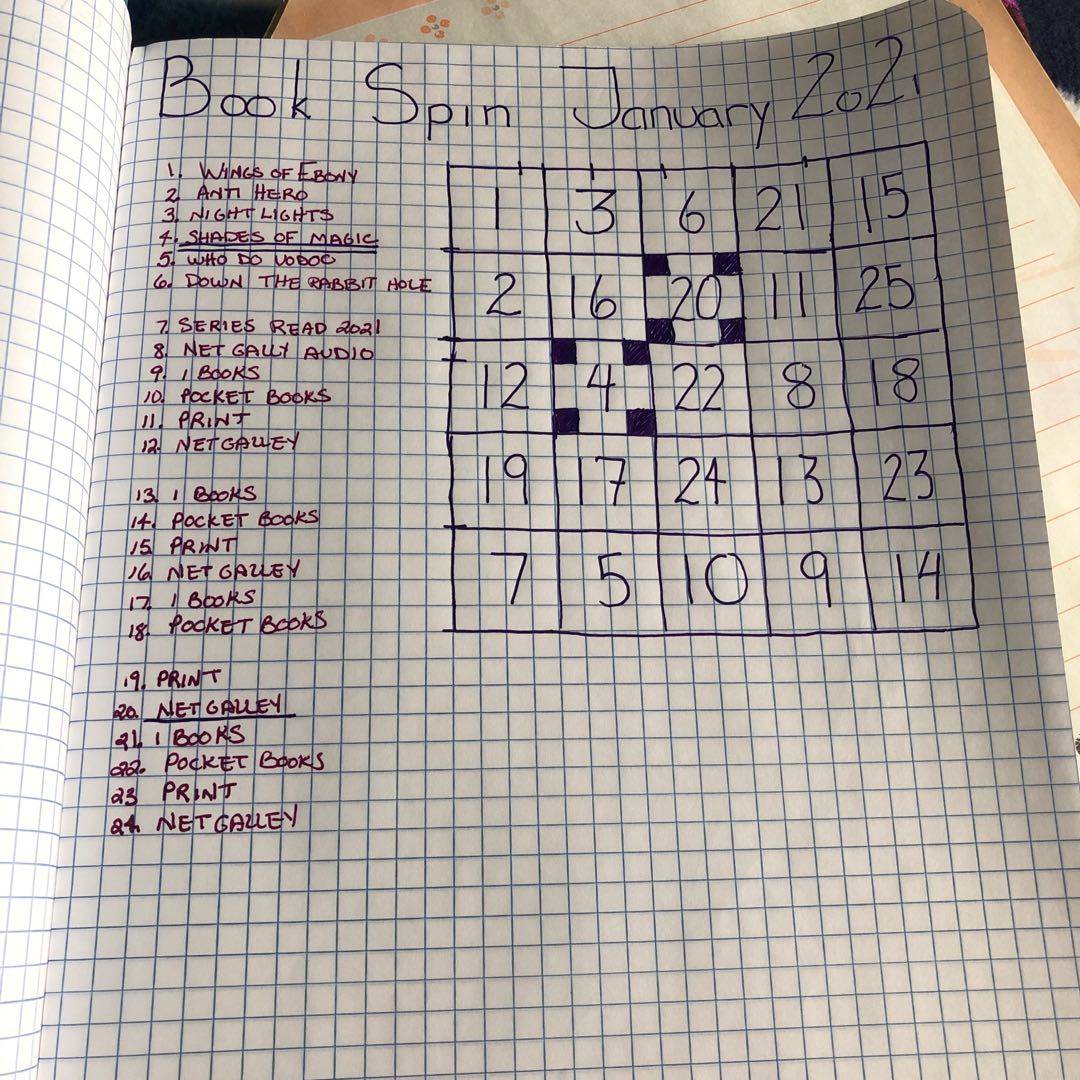 Book Spin January 2021
1. WINGS OF EBONY
2. ANTI HERO
3. NIGHT LIGHTS
4. SHADES OF MAGIC
5. WHO DO VODOO
6. DOWN THE RABBIT HOLE
7. SERIES READ 2021
8. NET GALLY AUDIO
9. 1 BOOKS
10. POCKET BOOKS
11. PRINT
12. NETGALLEY
13. 1 BOOKS
14. POCKET BOOKS
15. PRINT
16. NETGALLEY
17. 1 BOOKS
18. POCKET BOOKS
19. PRINT
20. NETGALLEY
21. 1 BOOKS
22. POCKET BOOKS
23 PRINT
24. NETGALLEY
1 3 6 21 15
2 16 20 11 25
12 4 22 8 18
19 17 24 13 23
7 5 10 9 14